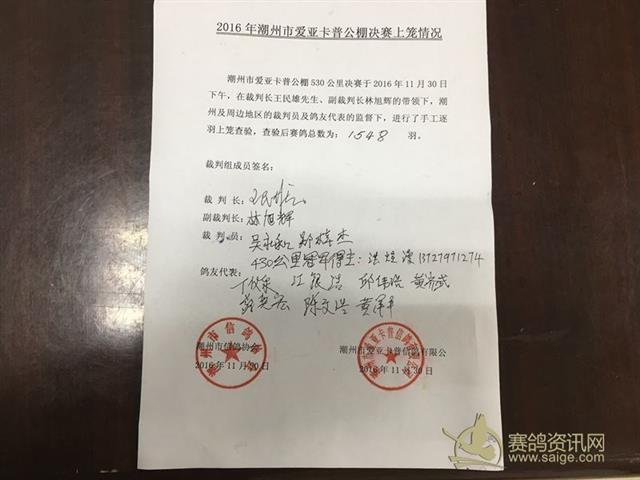 2016年潮州市爱亚卡普公棚决赛上笼情况
潮州市爱亚卡普公棚530公里决赛于2016年11月30日
下午，在裁判长王民雄先生、副裁判长林旭辉的带领下，潮
州及周边地区的裁判员及鸽友代表的监督下，进行了手工逐
羽上笼查验，查验后赛鸽总数为：1548 羽。
裁判组成员签名：
裁 判 长：
副裁判长：林旭辉
裁 判 员：吴永和
430公里冠军得主：洪煜漫 13727971274
鸽友代表：
江银浩 邱伟浩
陈文浩
潮州市信鸽协会
潮州市爱亚卡普信鸽有限公
2016年11月30日
2016年11月30日
赛鸽资讯网
www.saige.com